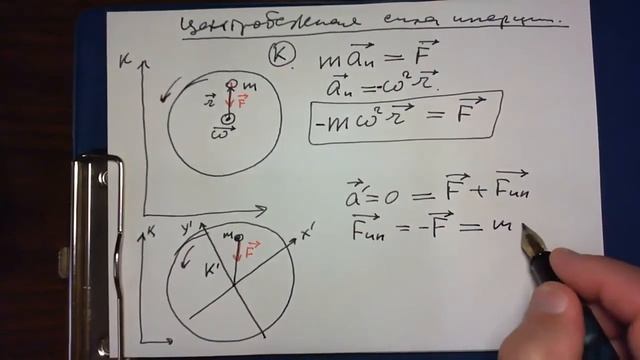 Центробежная сила инерции.
K
K
m a⃗ₙ = F⃗
a⃗ₙ = -ω² r⃗.
-mω² r⃗ = F⃗
m
r⃗
F⃗
ω⃗
a⃗' = 0 = F⃗ + F⃗ин
F⃗ин = -F⃗ = m
K
y'
x'
m
F⃗
K'